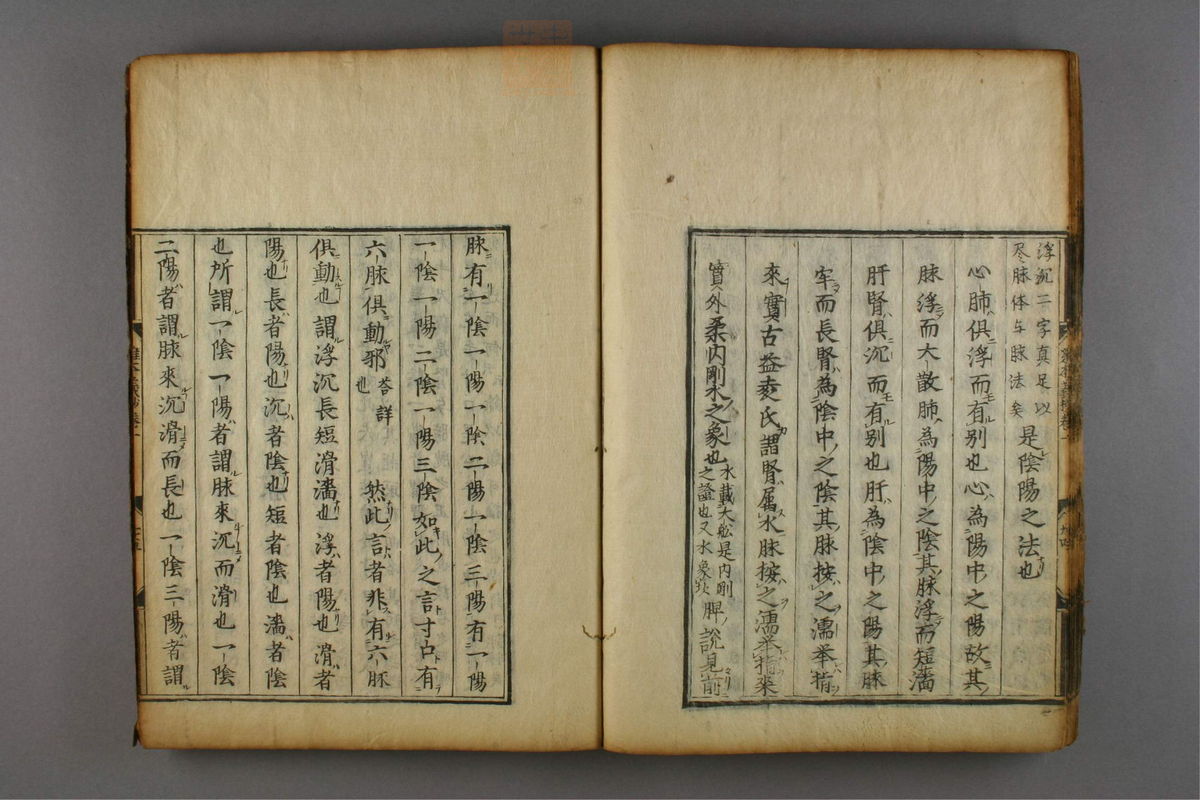 浮沉二字真足以
尽脉体与脉法矣
是陰陽之法也
心肺俱浮而有别也心為陽中之陽故其
脉浮而大散肺為陽中之陰其脉浮而短濇
肝腎俱沉而有别也肝為陰中之陽其脉
牢而長腎為陰中之陰其脉按之濡举指
來實古益袁氏謂腎属水脉按之濡举指來
實外柔内剛水之象也
水載大舩是内剛
之證也又水象坎
脾說見前
脉有一陰一陽一陰二陽一陰三陽有一陽
一陰一陽二陰一陽三陰如此之言寸口有
六脉俱動邪
荅詳
也
然此言者非有六脉
俱動也謂浮沉長短滑濇也浮者陽也滑者
陽也長者陽也沉者陰也短者陰也濇者陰
也所謂一陰一陽者謂脉來沉而滑也一陰
二陽者謂脉來沉滑而長也一陰三陽者謂